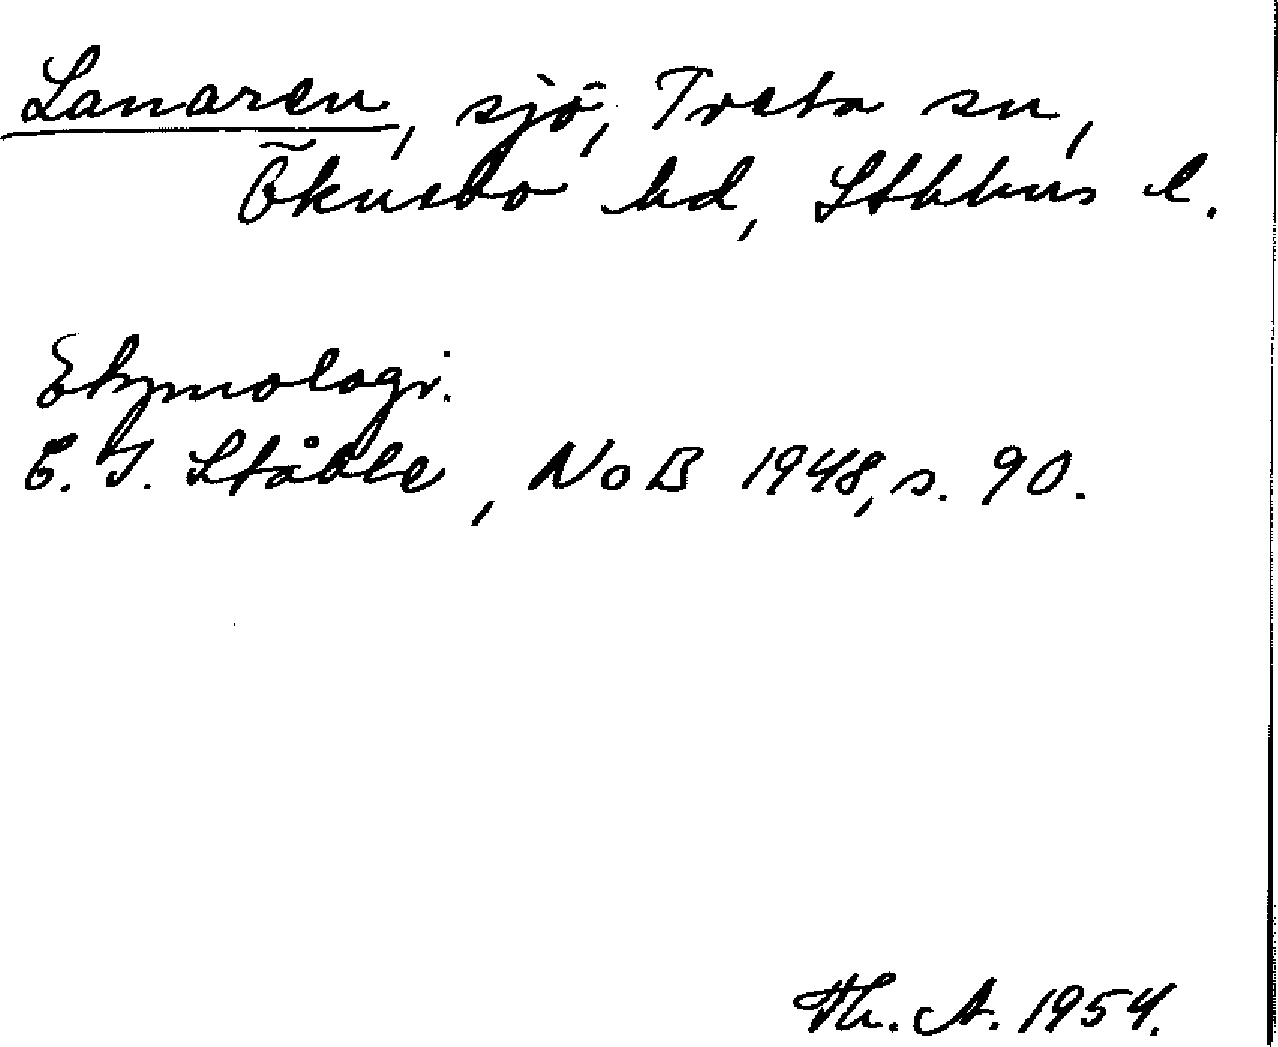 Lanaren, sjö, Treta sn,
Öknebo hd, Sthlms l.
Etymologi:
C. I. Ståhle, NoB 1948, s. 90.
Th. A. 1954.